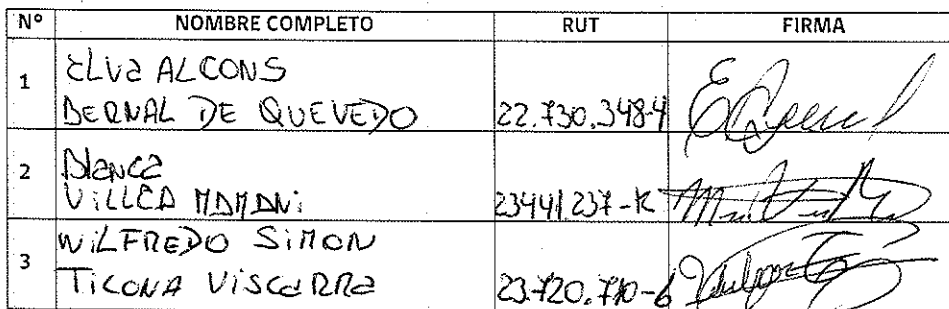 Nº NOMBRE COMPLETO RUT FIRMA
1 ELVA ALCONS
BERNAL DE QUEVEDO 22.730.348-4
2 Blanca
VILLCA MAMANI 23441237-K
3 WILFREDO SIMON
TICONA VISCARRA 23.720.710-6